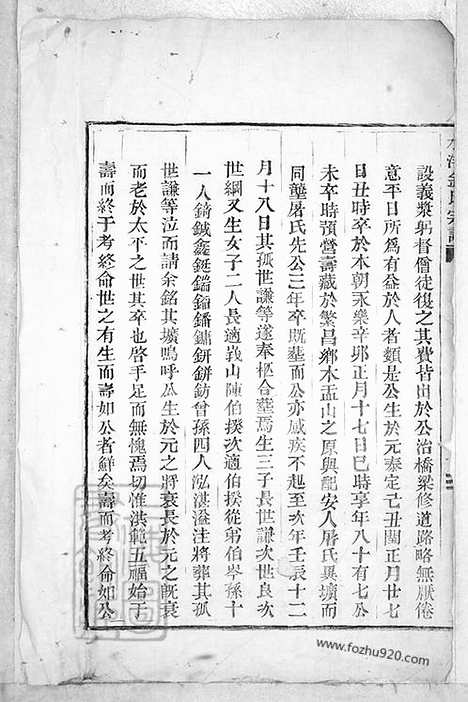 設義漿躬督僧徒復之其費皆出於公治橋梁修道路略無厭倦
意平日所為有益於人者類是公生於元泰定己丑閏正月廿七
日丑時卒於本朝永樂辛卯正月十七日巳時享年八十有七公
未卒時預營壽藏於繁昌鄉木盂山之原與配安人屠氏異壙而
同壟屠氏先公三年卒既塟而公亦感疾不起至次年壬辰十二
月十八日其孤世謙等遂奉柩合塟焉生三子長世謙次世良次
世綱又生女子二人長適峩山陳伯揆次適伯揆從弟伯岑孫十
一人錡鉞鑫鋌鎦鐇鏞鈃鉼鈁曾孫四人泓湛溢注將葬其孤
世謙等泣而請余銘其壙嗚呼公生於元之將衰長於元之既衰
而老於太平之世其卒也啓手足而無愧焉切惟洪範五福始于
壽而終于考終命世之有生而壽如公者鮮矣壽而考終命如公
www.fozhu920.com